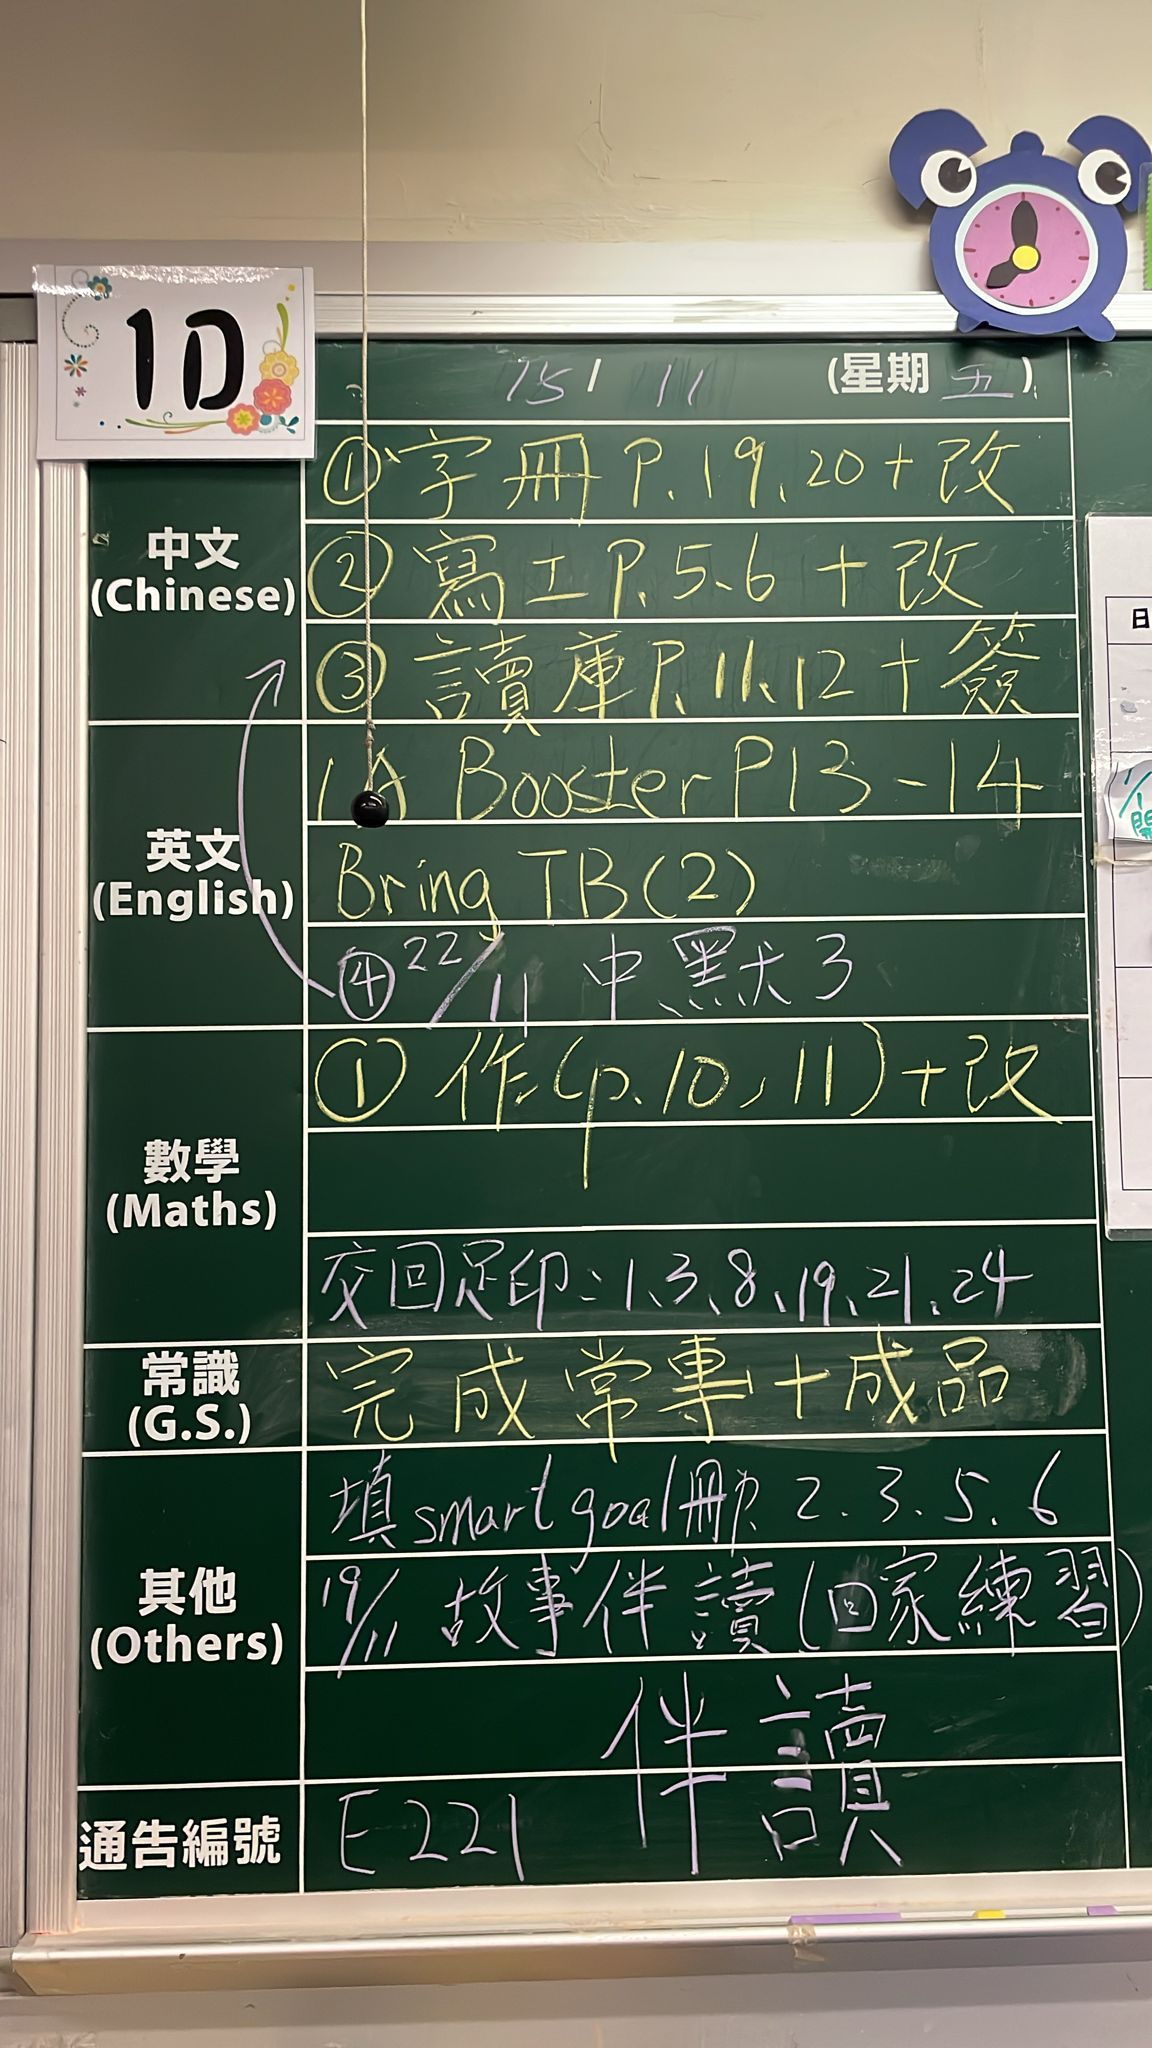 1D
15 / 11 (星期五)
中文
(Chinese)
① 字冊 P.19、20 + 改
② 寫工 P.5、6 + 改
③ 讀庫 P.11、12 + 簽
英文
(English)
1A Booster P13-14
Bring TB(2)
④ 22/11 中默3
數學
(Maths)
① 作(p.10, 11) + 改
交回足印：1、3、8、19、21、24
常識
(G.S.)
完成常專 + 成品
其他
(Others)
填 smart goal 冊P. 2、3、5、6
19/11 故事伴讀(回家練習)
伴讀
通告編號
E221
日